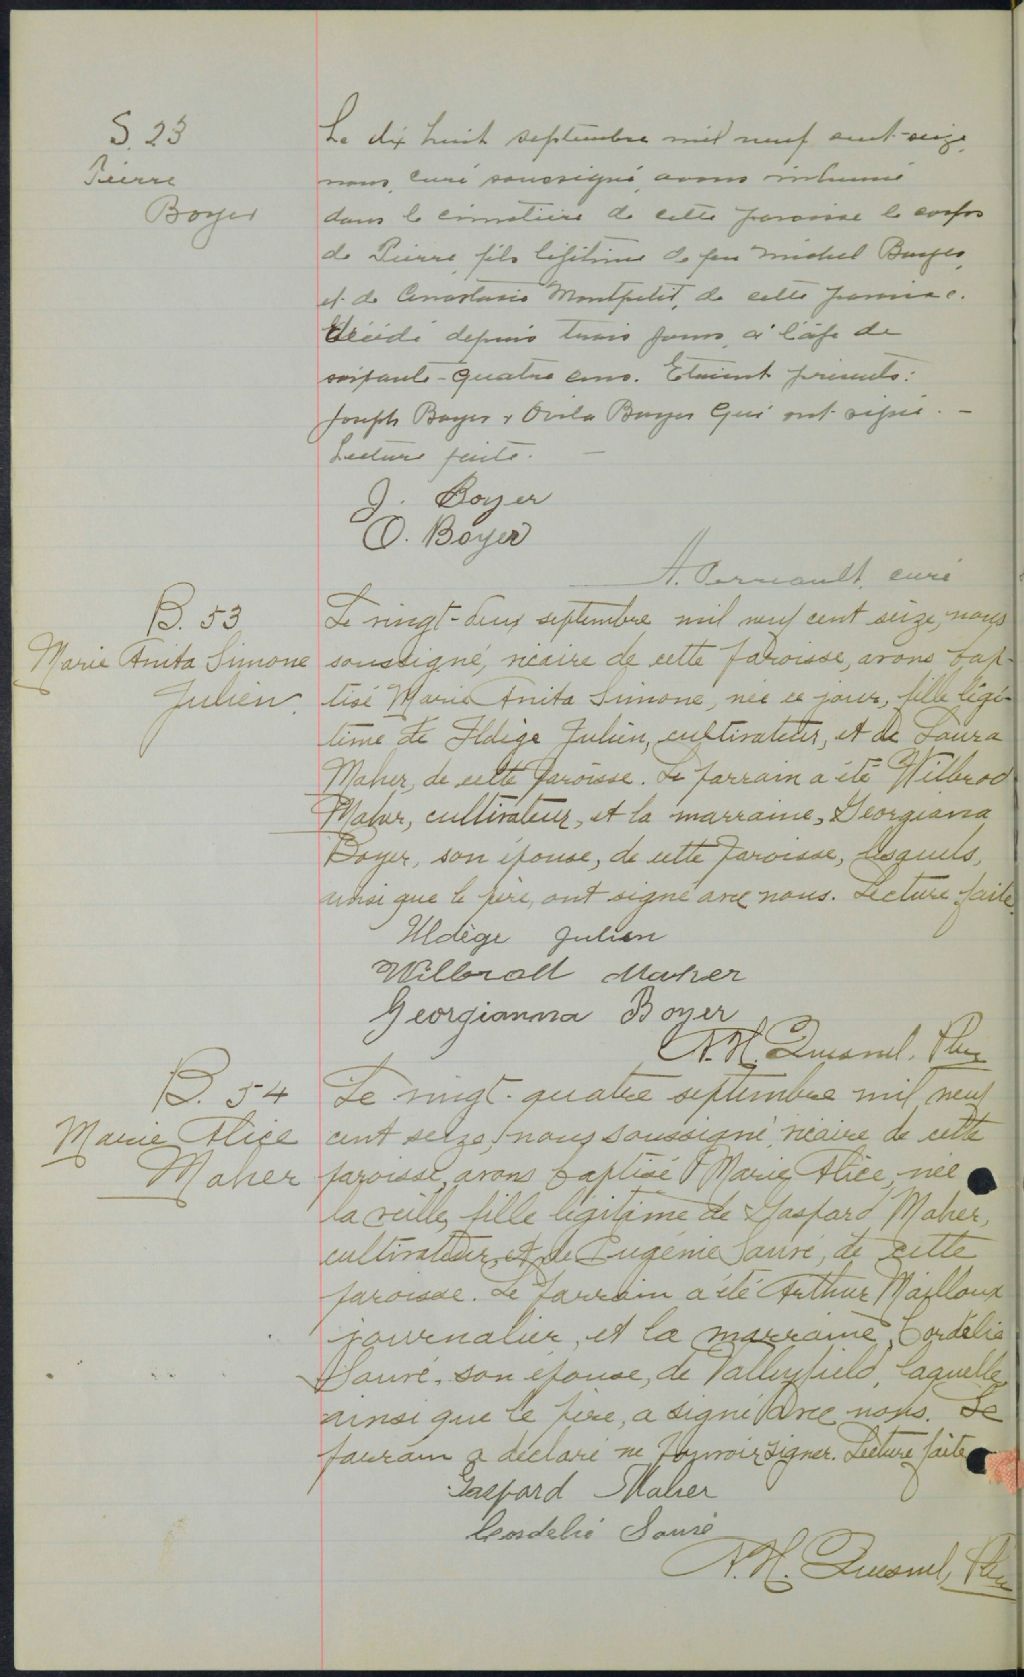 S. 23
Pierre
Boyer
Le dix huit septembre mil neuf cent-seize,
nous, curé soussigné, avons inhumé
dans le cimetière de cette paroisse le corps
de Pierre, fils légitime de feu Michel Boyer,
et de Anastasie Montpetit, de cette paroisse.
décédé depuis trois jours, à l'âge de
soixante-quatre ans. Etaient présents:
Joseph Boyer & Ovila Boyer qui ont signé. -
Lecture faite. -
J. Boyer
O. Boyer
A. Perreault, curé
B. 53
Marie Anita Simone
Julien.
Le vingt-deux septembre mil neuf cent seize, nous
soussigné, vicaire de cette paroisse, avons bap-
tisé Marie Anita Simone, née ce jour, fille légi-
time de Ildège Julien, cultivateur, et de Laura
Maher, de cette paroisse. Le parrain a été Wilbrod
Maher, cultivateur, et la marraine, Georgiana
Boyer, son épouse, de cette paroisse, lesquels,
ainsi que le père, ont signé avec nous. Lecture faite.
Ildège Julien
Wilbrod Maher
Georgianna Boyer
A. H. Quesnel, Ptre
B. 54
Marie Alice
Maher
Le vingt-quatre septembre mil neuf
cent seize, nous soussigné, vicaire de cette
paroisse, avons baptisé Marie Alice, née
la veille, fille légitime de Gaspard Maher,
cultivateur, et de Eugénie Sauvé, de cette
paroisse. Le parrain a été Arthur Mailloux
journalier, et la marraine, Cordélie
Sauvé, son épouse, de Valleyfield, laquelle,
ainsi que le père, a signé avec nous. Le
parrain a déclaré ne pouvoir signer. Lecture faite
Gaspard Maher
Cordélié Sauvé
A. H. Quesnel, Ptre